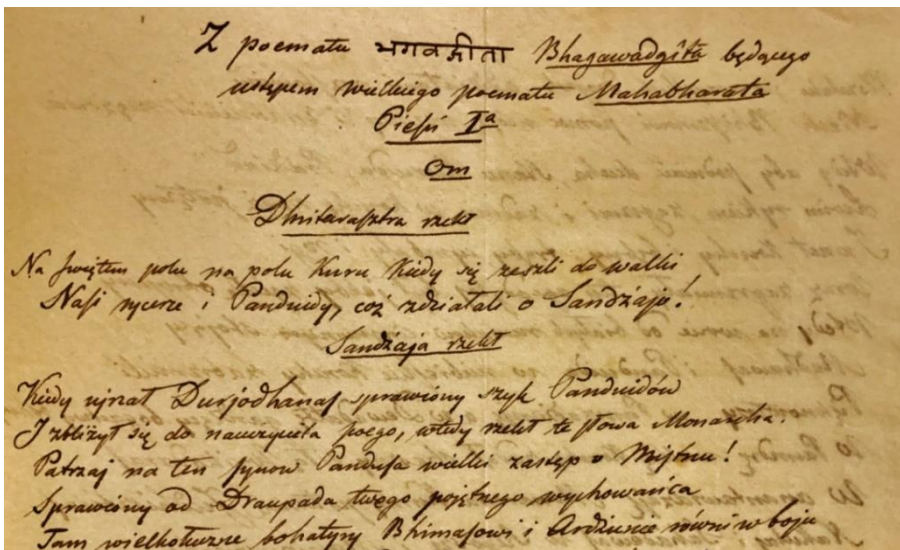 Z poematu भगवद्गीता Bhagawadgîta będącego
ustępem wielkiego poematu Mahabharata
Pieśń Iª
Om
Dhritarasztra rzekł
Na świętem polu na polu Kuru kiedy się zeszli do walki
Nasi rycerze i Panduidy, cóż zdziałali o Sandżajo!
Sandżaja rzekł
Kiedy ujrzał Durjodhanas sprawiony szyk Panduidów
I zbliżył się do nauczyciela swego, wtedy rzekł te słowa Monarcha.
Patrzaj na ten synów Pandusa wielki zastęp o Mistrzu!
Sprawiony od Draupada twego pojętnego wychowańca
Tam wielkołuczne bohatyry Bhimasowi i Ardżunie równi w boju